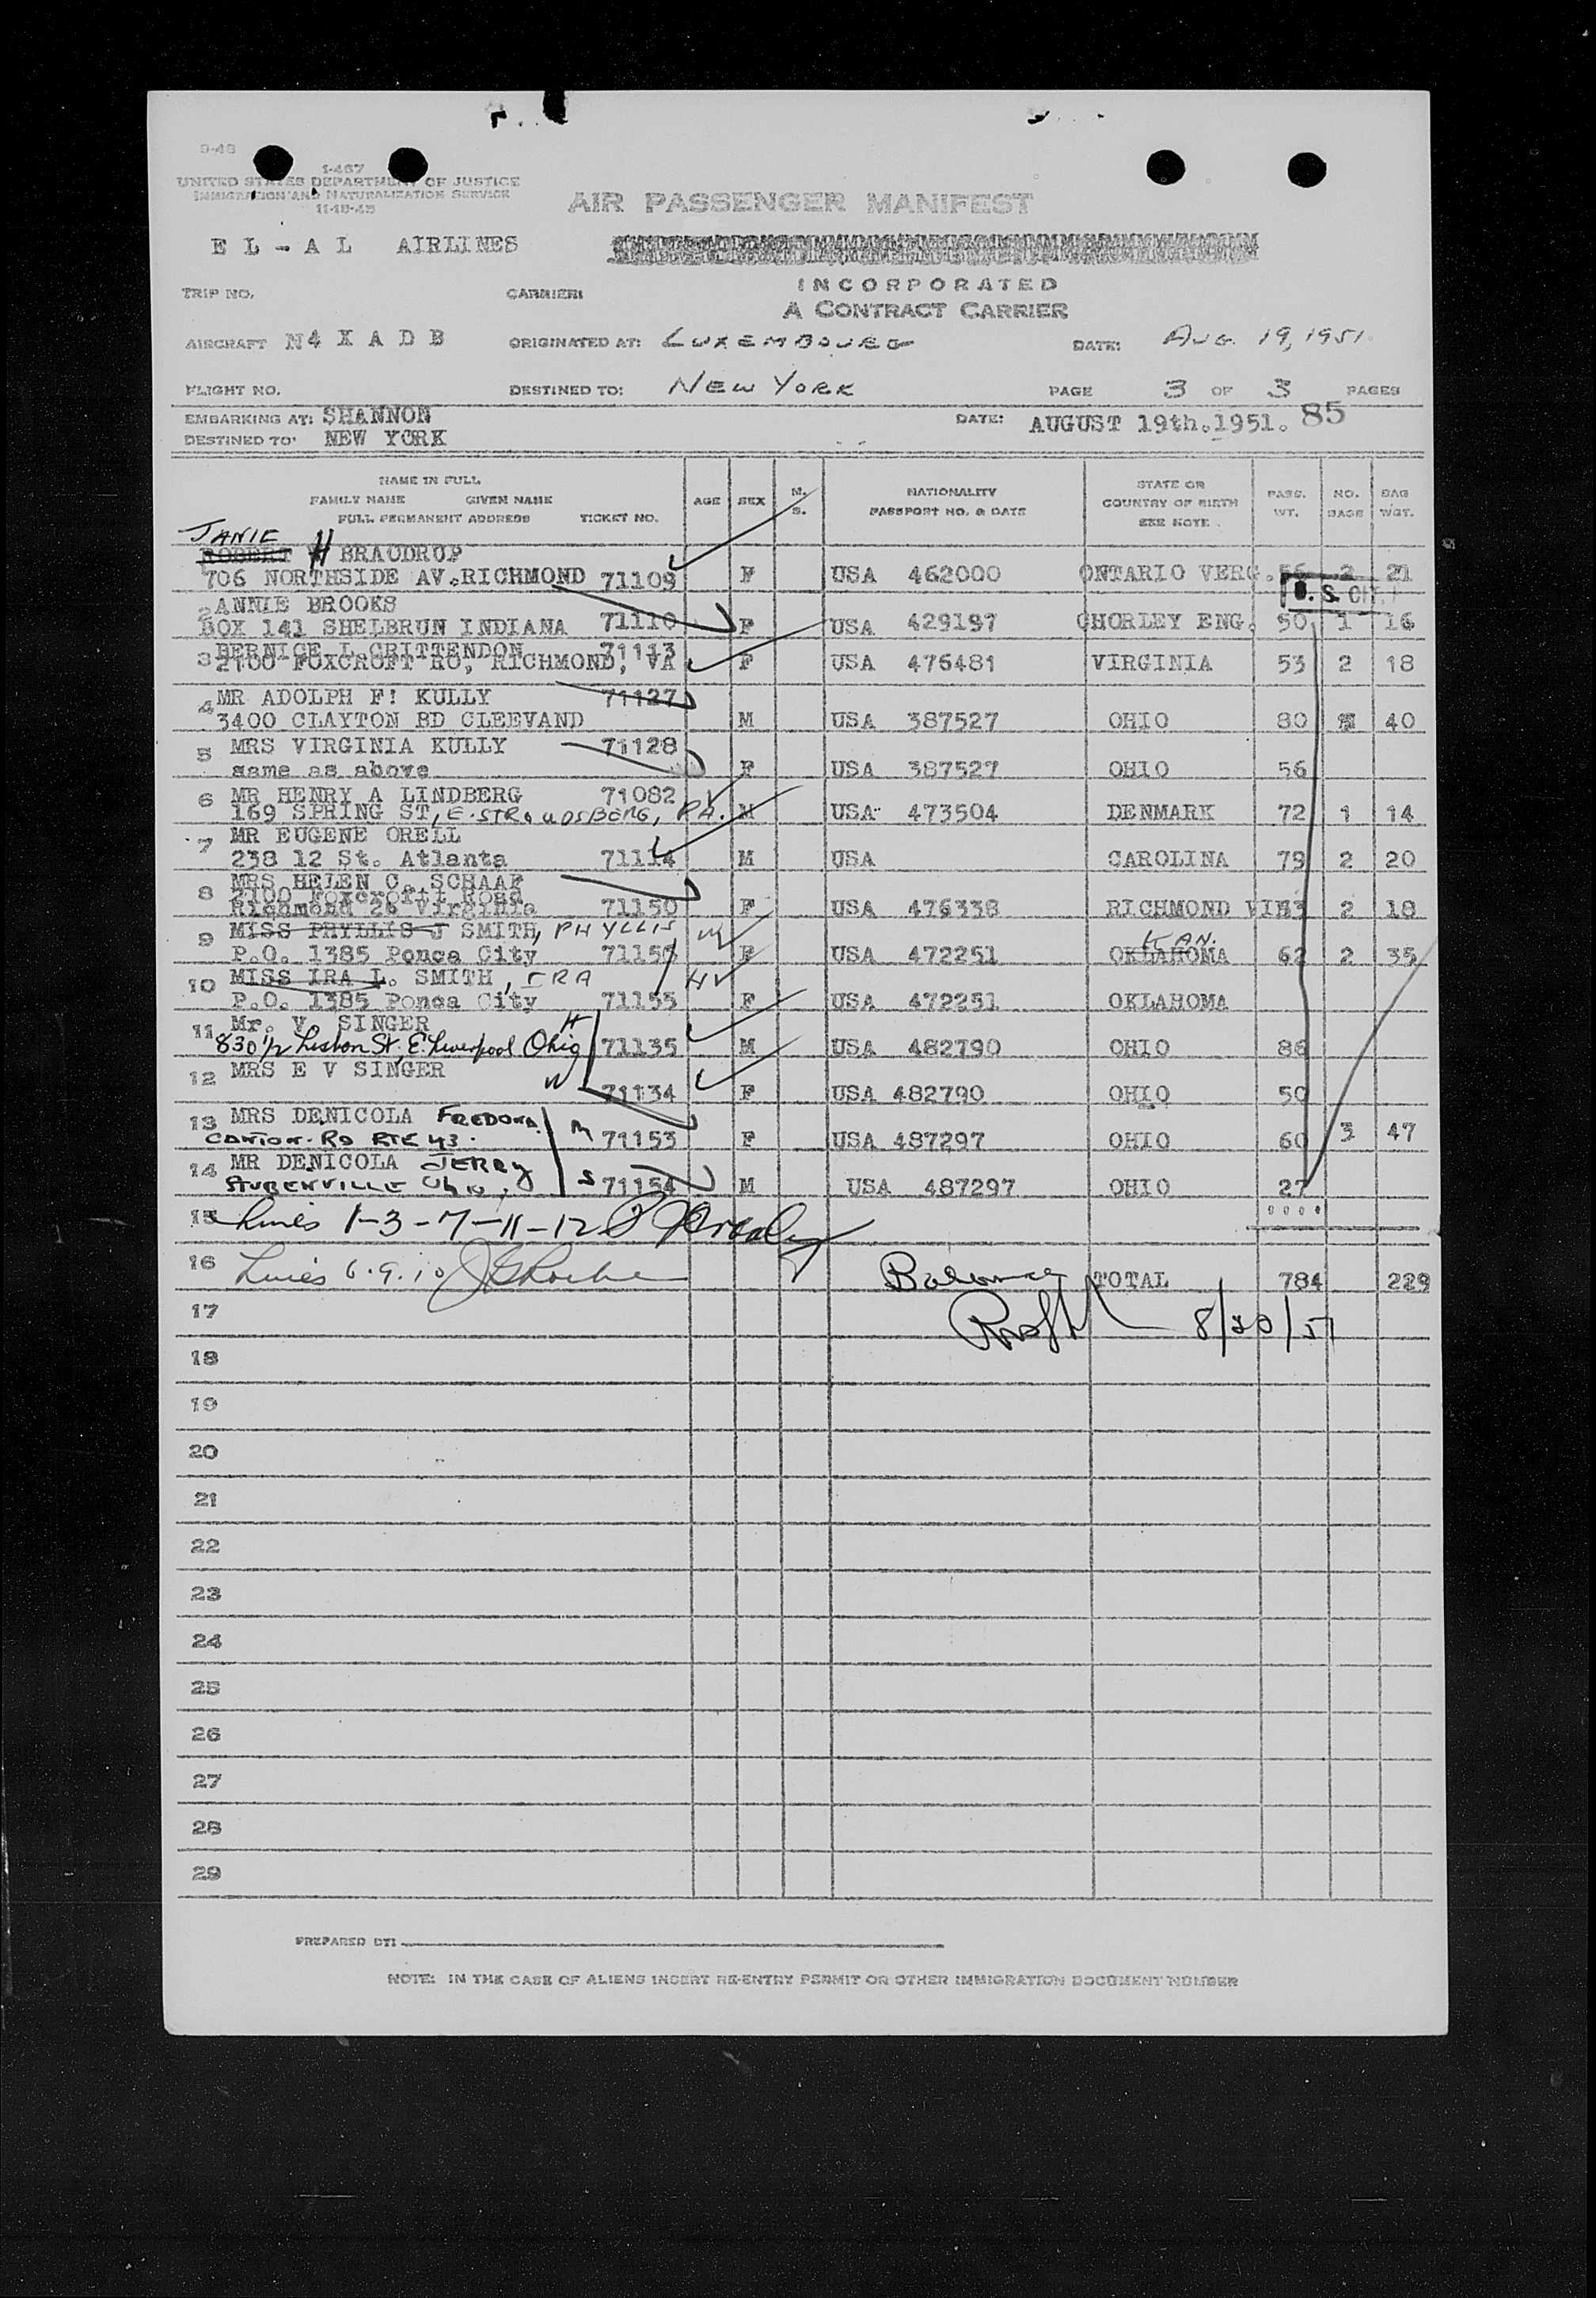 9-48
1-467
UNITED STATES DEPARTMENT OF JUSTICE
IMMIGRATION AND NATURALIZATION SERVICE
11-18-45
AIR PASSENGER MANIFEST
EL-AL AIRLINES
INCORPORATED
TRIP NO. CARRIER:
A CONTRACT CARRIER
AIRCRAFT N4XADB ORIGINATED AT: LUXEMBOURG DATE: AUG. 19, 1951
FLIGHT NO. DESTINED TO: NEW YORK PAGE 3 OF 3 PAGES
EMBARKING AT: SHANNON DATE: AUGUST 19th.1951. 85
DESTINED TO: NEW YORK
NAME IN FULL
FAMILY NAME GIVEN NAME
FULL PERMANENT ADDRESS TICKET NO. AGE SEX M. S. NATIONALITY PASSPORT NO. & DATE STATE OR COUNTRY OF BIRTH SEE NOTE PASS. WT. NO. BAGS BAG WGT.
JANIE
ROBERT H BRAUDRUP
706 NORTHSIDE AV.RICHMOND 71109 F USA 462000 ONTARIO VERG. 56 2 21
U.S. CIT.
2 ANNIE BROOKS
BOX 141 SHELBRUN INDIANA 71110 F USA 429197 CHORLEY ENG. 50 1 16
BERNICE L CRITTENDON 71113
3 2100 FOXCROFT RO, RICHMOND, VA F USA 476481 VIRGINIA 53 2 18
4 MR ADOLPH F! KULLY 71127
3400 CLAYTON BD CLEEVAND M USA 387527 OHIO 80 40
5 MRS VIRGINIA KULLY 71128
same as above F USA 387527 OHIO 56
6 MR HENRY A LINDBERG 71082
169 SPRING ST, E. STROUDSBERG, PA. M USA 473504 DENMARK 72 1 14
7 MR EUGENE ORELL
238 12 St. Atlanta 71114 M USA CAROLINA 79 2 20
8 MRS HELEN C. SCHAAF
2100 Foxcroft Road
Richmond 26 Virginia 71150 F USA 476338 RICHMOND VIR 53 2 18
9 MISS PHYLLIS J SMITH, PHYLLIS W KAN.
P.O. 1385 Ponca City 71156 F USA 472251 OKLAHOMA 62 2 35
10 MISS IRA L. SMITH, IRA H
P.O. 1385 Ponca City 71155 F USA 472251 OKLAHOMA
11 Mr. V SINGER H
830 1/2 Lisbon St, E. Liverpool Ohio 71135 M USA 482790 OHIO 86
12 MRS E V SINGER W
71134 F USA 482790 OHIO 50
13 MRS DENICOLA FREDONA M
CANTON RD RTE 43. 71153 F USA 487297 OHIO 60 3 47
14 MR DENICOLA JERRY
STUBENVILLE Ohio, S 71154 M USA 487297 OHIO 27
15 Lines 1-3-7-11-12
16 Lines 6.9.10 Balance TOTAL 784 229
17 8/20/51
18
19
20
21
22
23
24
25
26
27
28
29
PREPARED BY:
NOTE: IN THE CASE OF ALIENS INSERT RE-ENTRY PERMIT OR OTHER IMMIGRATION DOCUMENT NUMBER